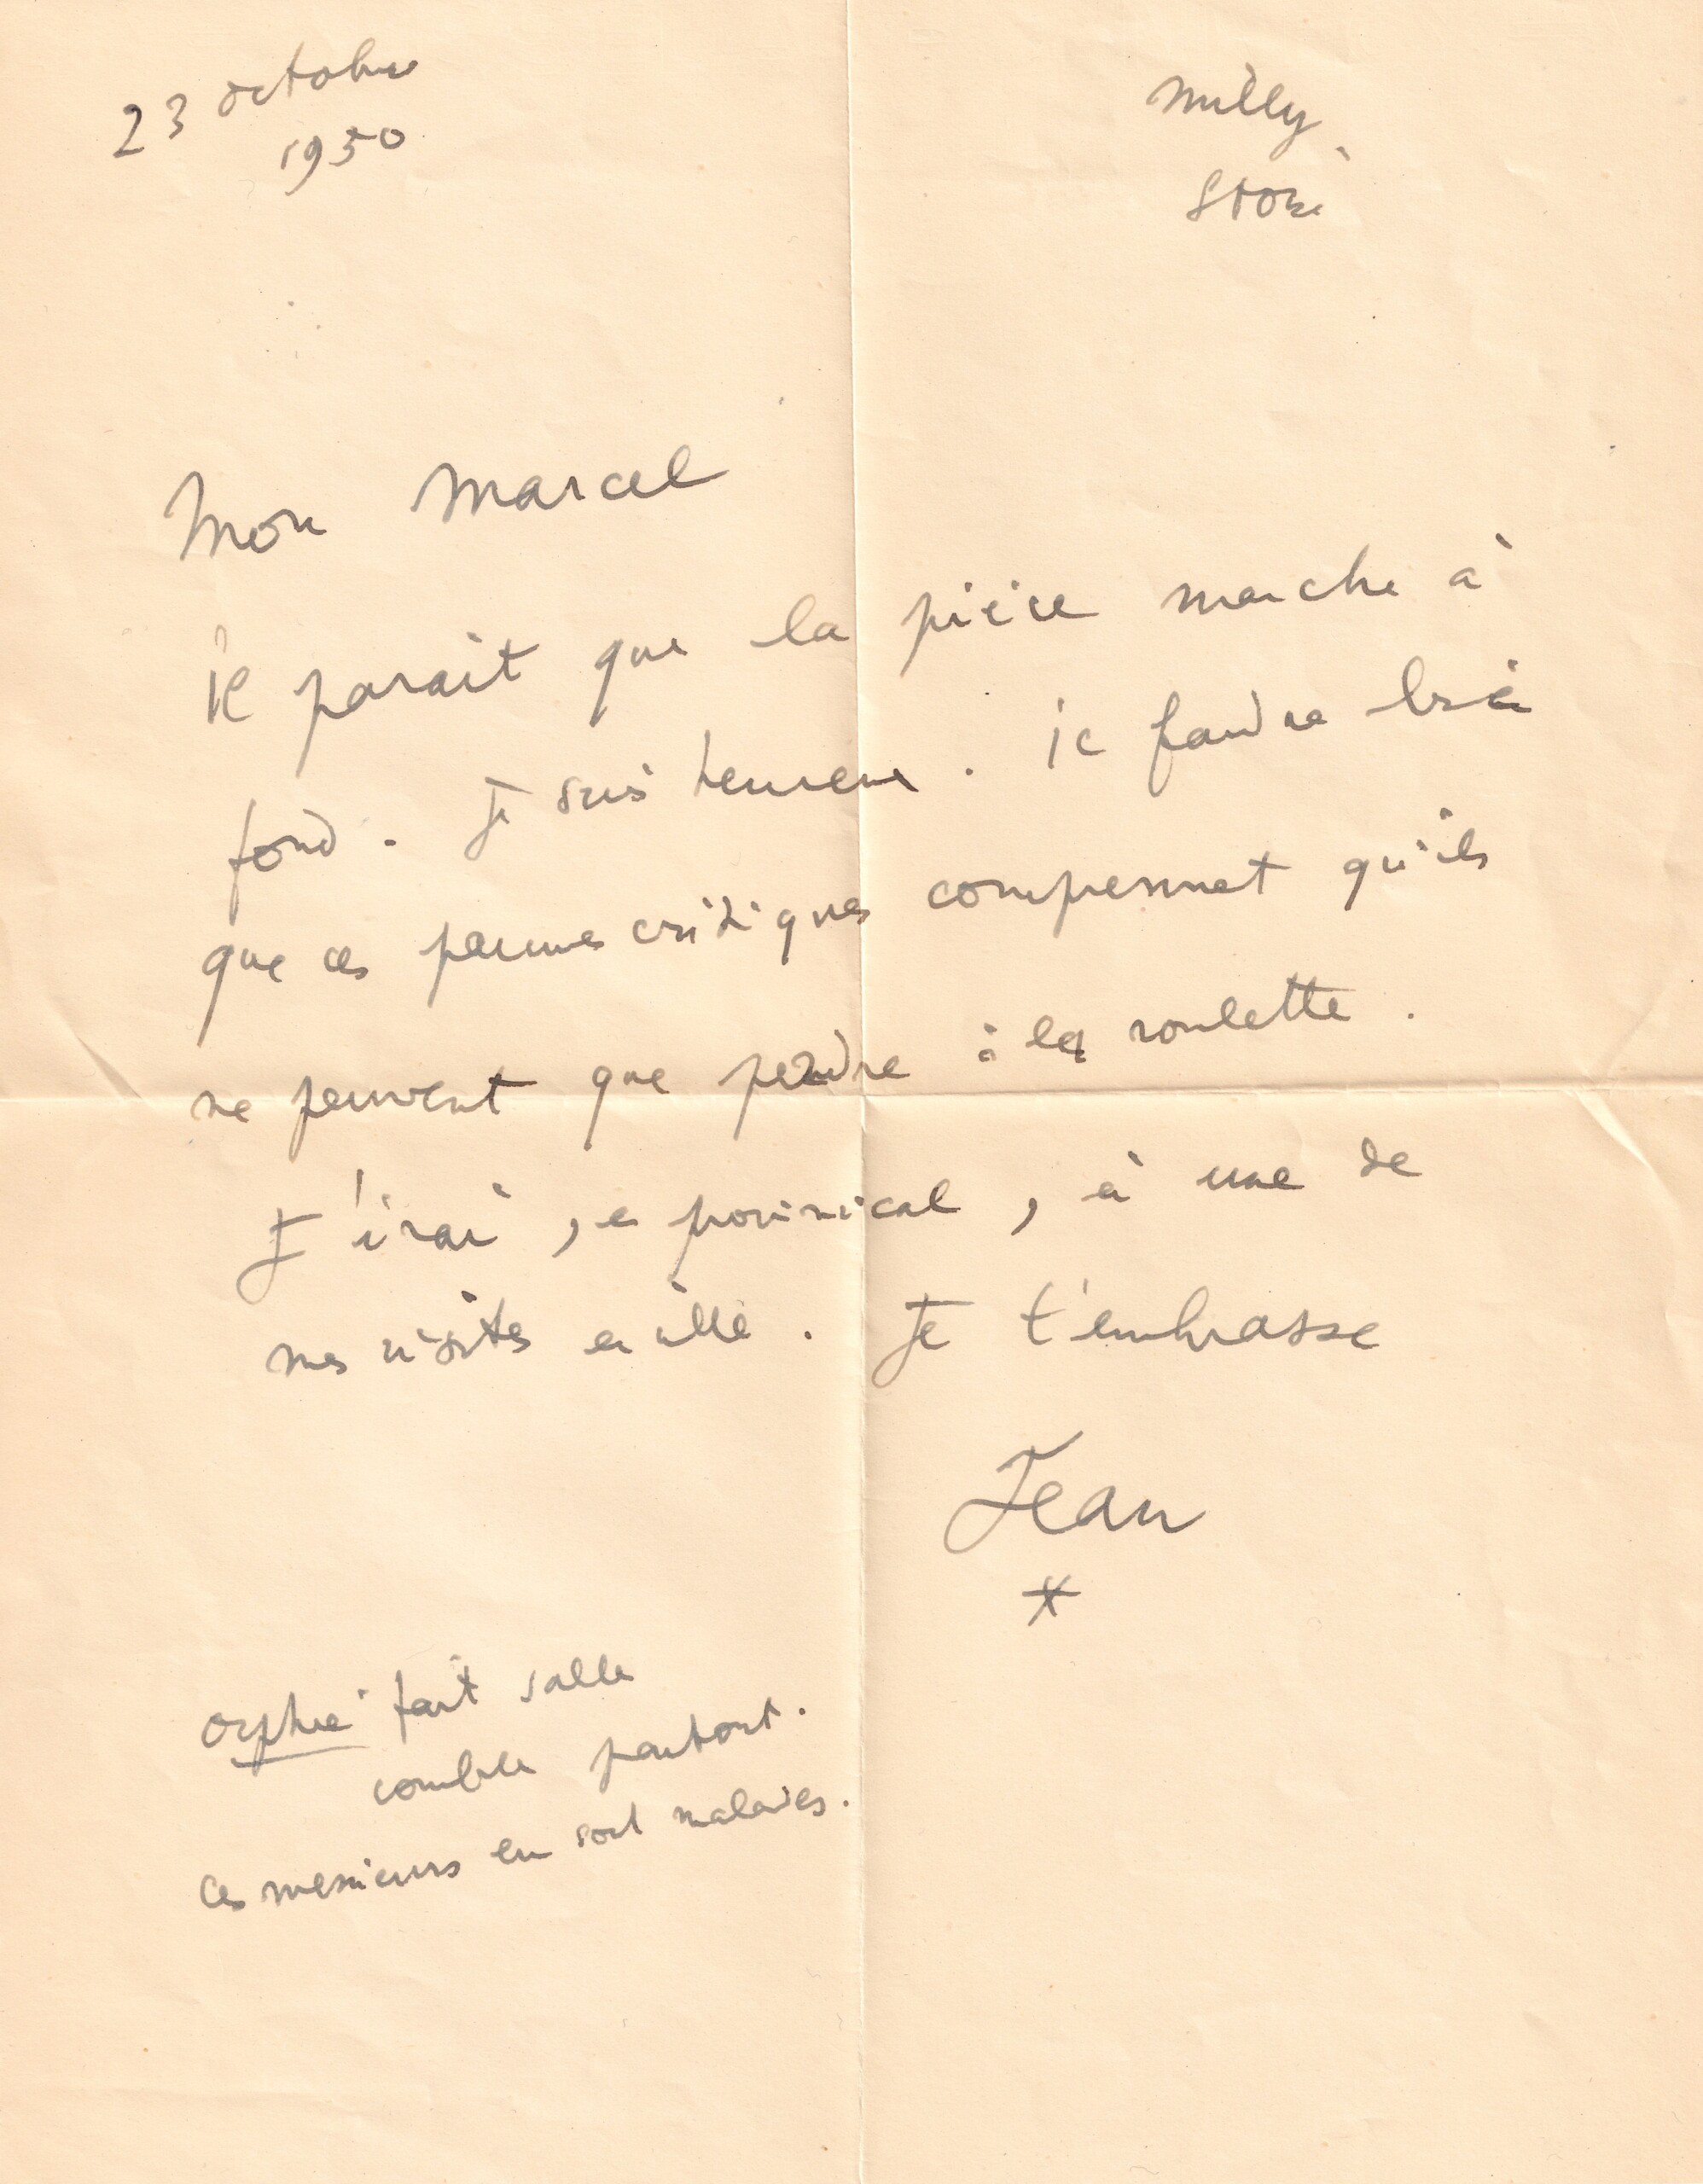 23 octobre
1950
Milly
S et O
Mon Marcel
il parait que la pièce marche à
fond. Je suis heureux. il faudra bien
que ces pauvres critiques comprennent qu'ils
ne peuvent que perdre à la roulette.
J'irai, à , à une de
mes visites en ville. Je t'embrasse
Jean
*
Orphée fait salle
comble partout.
Ces messieurs en sont malades.